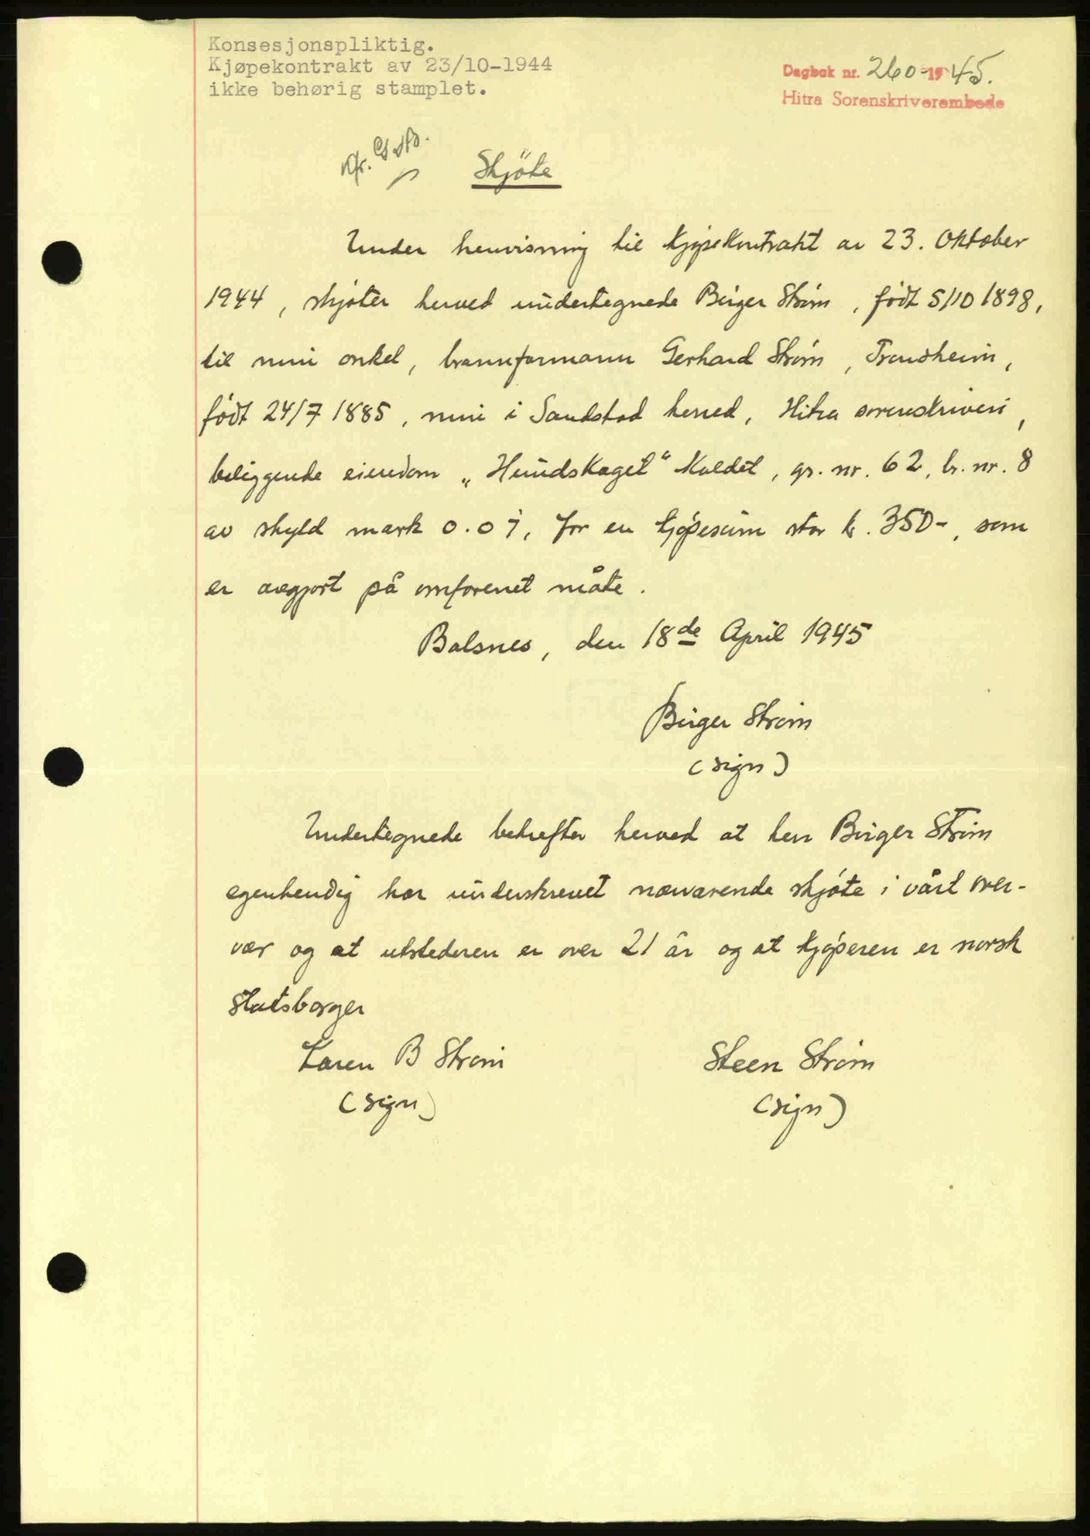 Konsesjonspliktig.
Kjøpekontrakt av 23/10-1944
ikke behørig stamplet.
Dagbok nr. 260-1945.
Hitra Sorenskriverembede
Skjöte
Under henvisning til kjøpekontrakt av 23. Oktober
1944, skjøter herved undertegnede Birger Strøm, født 5/10 1898,
til min onkel, brannformann Gerhard Strøm, Trondheim,
født 24/7 1885, min i Sandstad herred, Hitra sorenskriveri,
beliggende eiendom „Hundskaget" Kaldet, gr. nr. 62, br. nr. 8
av skyld mark 0.07, for en kjøpesum stor kr. 350-, som
er avgjort på omforenet måte.
Balsnes, den 18de April 1945
Birger Strøm
(sign)
Undertegnede bekrefter herved at herr Birger Strøm
egenhendig har underskrevet nærværende skjøte i vårt over-
vær og at utstederen er over 21 år og at kjøperen er norsk
Statsborger
Karen B Strøm
(sign)
Steen Strøm
(sign)